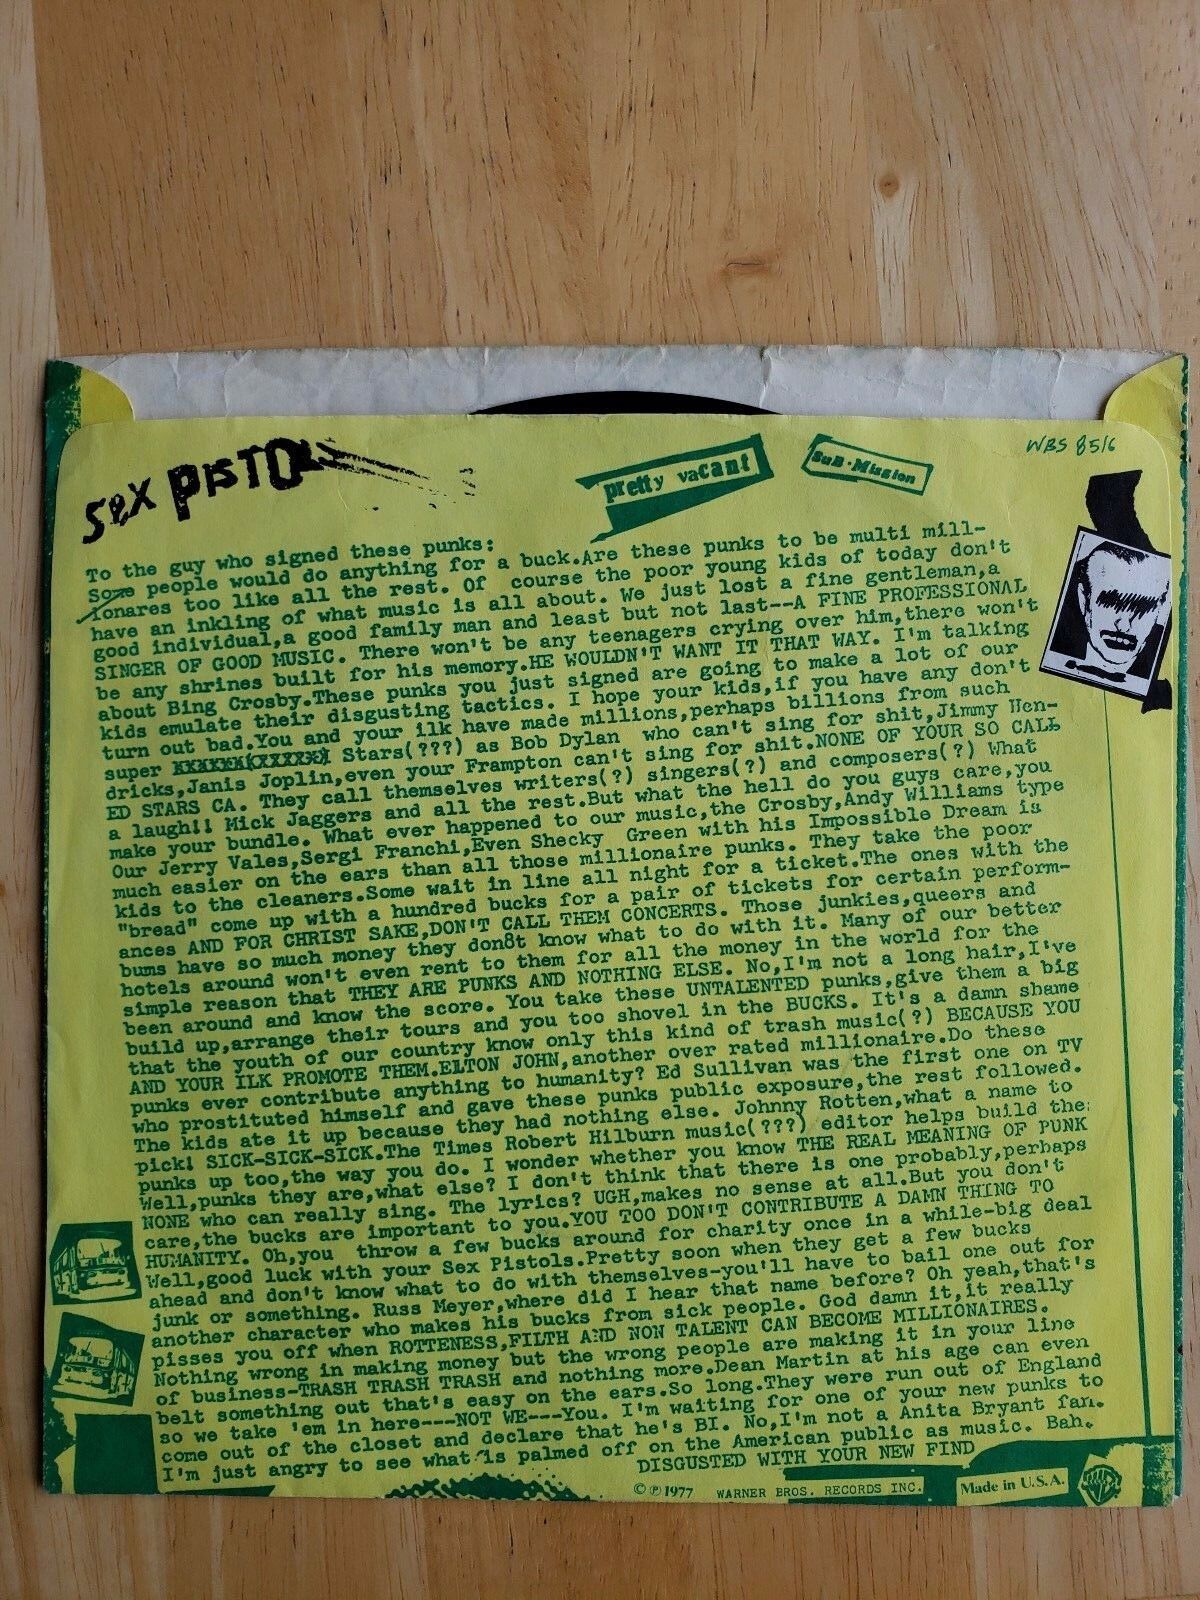 sex pistols
pretty vacant
Sub·Mission
WBS 8516
To the guy who signed these punks:
Some people would do anything for a buck.Are these punks to be multi mill-
ionares too like all the rest. Of course the poor young kids of today don't
have an inkling of what music is all about. We just lost a fine gentleman,a
good individual,a good family man and least but not last--A FINE PROFESSIONAL
SINGER OF GOOD MUSIC. There won't be any teenagers crying over him,there won't
be any shrines built for his memory.HE WOULDN'T WANT IT THAT WAY. I'm talking
about Bing Crosby.These punks you just signed are going to make a lot of our
kids emulate their disgusting tactics. I hope your kids,if you have any don't
turn out bad.You and your ilk have made millions,perhaps billions from such
super Stars(???) as Bob Dylan who can't sing for shit,Jimmy Hen-
dricks,Janis Joplin,even your Frampton can't sing for shit.NONE OF YOUR SO CALL
ED STARS CA. They call themselves writers(?) singers(?) and composers(?) What
a laugh!! Mick Jaggers and all the rest.But what the hell do you guys care,you
make your bundle. What ever happened to our music,the Crosby,Andy Williams type
Our Jerry Vales,Sergi Franchi,Even Shecky Green with his Impossible Dream is
much easier on the ears than all those millionaire punks. They take the poor
kids to the cleaners.Some wait in line all night for a ticket.The ones with the
"bread" come up with a hundred bucks for a pair of tickets for certain perform-
ances AND FOR CHRIST SAKE,DON'T CALL THEM CONCERTS. Those junkies,queers and
bums have so much money they don8t know what to do with it. Many of our better
hotels around won't even rent to them for all the money in the world for the
simple reason that THEY ARE PUNKS AND NOTHING ELSE. No,I'm not a long hair,I've
been around and know the score. You take these UNTALENTED punks,give them a big
build up,arrange their tours and you too shovel in the BUCKS. It's a damn shame
that the youth of our country know only this kind of trash music(?) BECAUSE YOU
AND YOUR ILK PROMOTE THEM.ELTON JOHN,another over rated millionaire.Do these
punks ever contribute anything to humanity? Ed Sullivan was the first one on TV
who prostituted himself and gave these punks public exposure,the rest followed.
The kids ate it up because they had nothing else. Johnny Rotten,what a name to
pick! SICK-SICK-SICK.The Times Robert Hilburn music(???) editor helps build the
punks up too,the way you do. I wonder whether you know THE REAL MEANING OF PUNK
Well,punks they are,what else? I don't think that there is one probably,perhaps
NONE who can really sing. The lyrics? UGH,makes no sense at all.But you don't
care,the bucks are important to you.YOU TOO DON'T CONTRIBUTE A DAMN THING TO
HUMANITY. Oh,you throw a few bucks around for charity once in a while-big deal
Well,good luck with your Sex Pistols.Pretty soon when they get a few bucks
ahead and don't know what to do with themselves-you'll have to bail one out for
junk or something. Russ Meyer,where did I hear that name before? Oh yeah,that's
another character who makes his bucks from sick people. God damn it,it really
pisses you off when ROTTENESS,FILTH AND NON TALENT CAN BECOME MILLIONAIRES.
Nothing wrong in making money but the wrong people are making it in your line
of business-TRASH TRASH TRASH and nothing more.Dean Martin at his age can even
belt something out that's easy on the ears.So long.They were run out of England
so we take 'em in here---NOT WE---You. I'm waiting for one of your new punks to
come out of the closet and declare that he's BI. No,I'm not a Anita Bryant fan.
I'm just angry to see what is palmed off on the American public as music. Bah.
DISGUSTED WITH YOUR NEW FIND
© ℗ 1977 WARNER BROS. RECORDS INC.
Made in U.S.A.